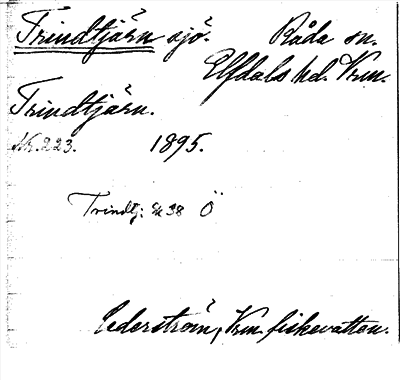 Trindtjärn sjö. Råda sn.
Elfdals hd. Vrm.
Trindtjärn.
Nr. 223. 1895.
Trindtj: Ek 38 Ö
Cederström, Vrm. fiskevatten.